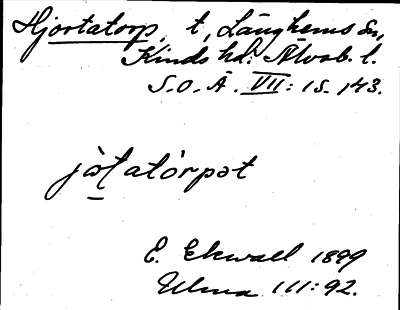 Hjortatorp, t, Länghems sn,
Kinds hd. Älvsb. l.
S.O.Ä. VII: 1 s. 143.
jòt̠atòrpət
E. Ekwall 1899
Ulma 111:92.